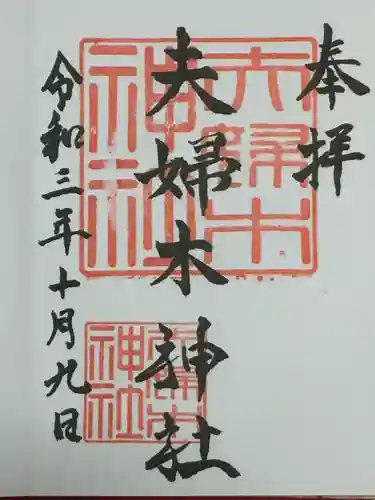 奉拝
夫婦木神社
令和三年十月九日
夫婦木神社
夫婦木神社